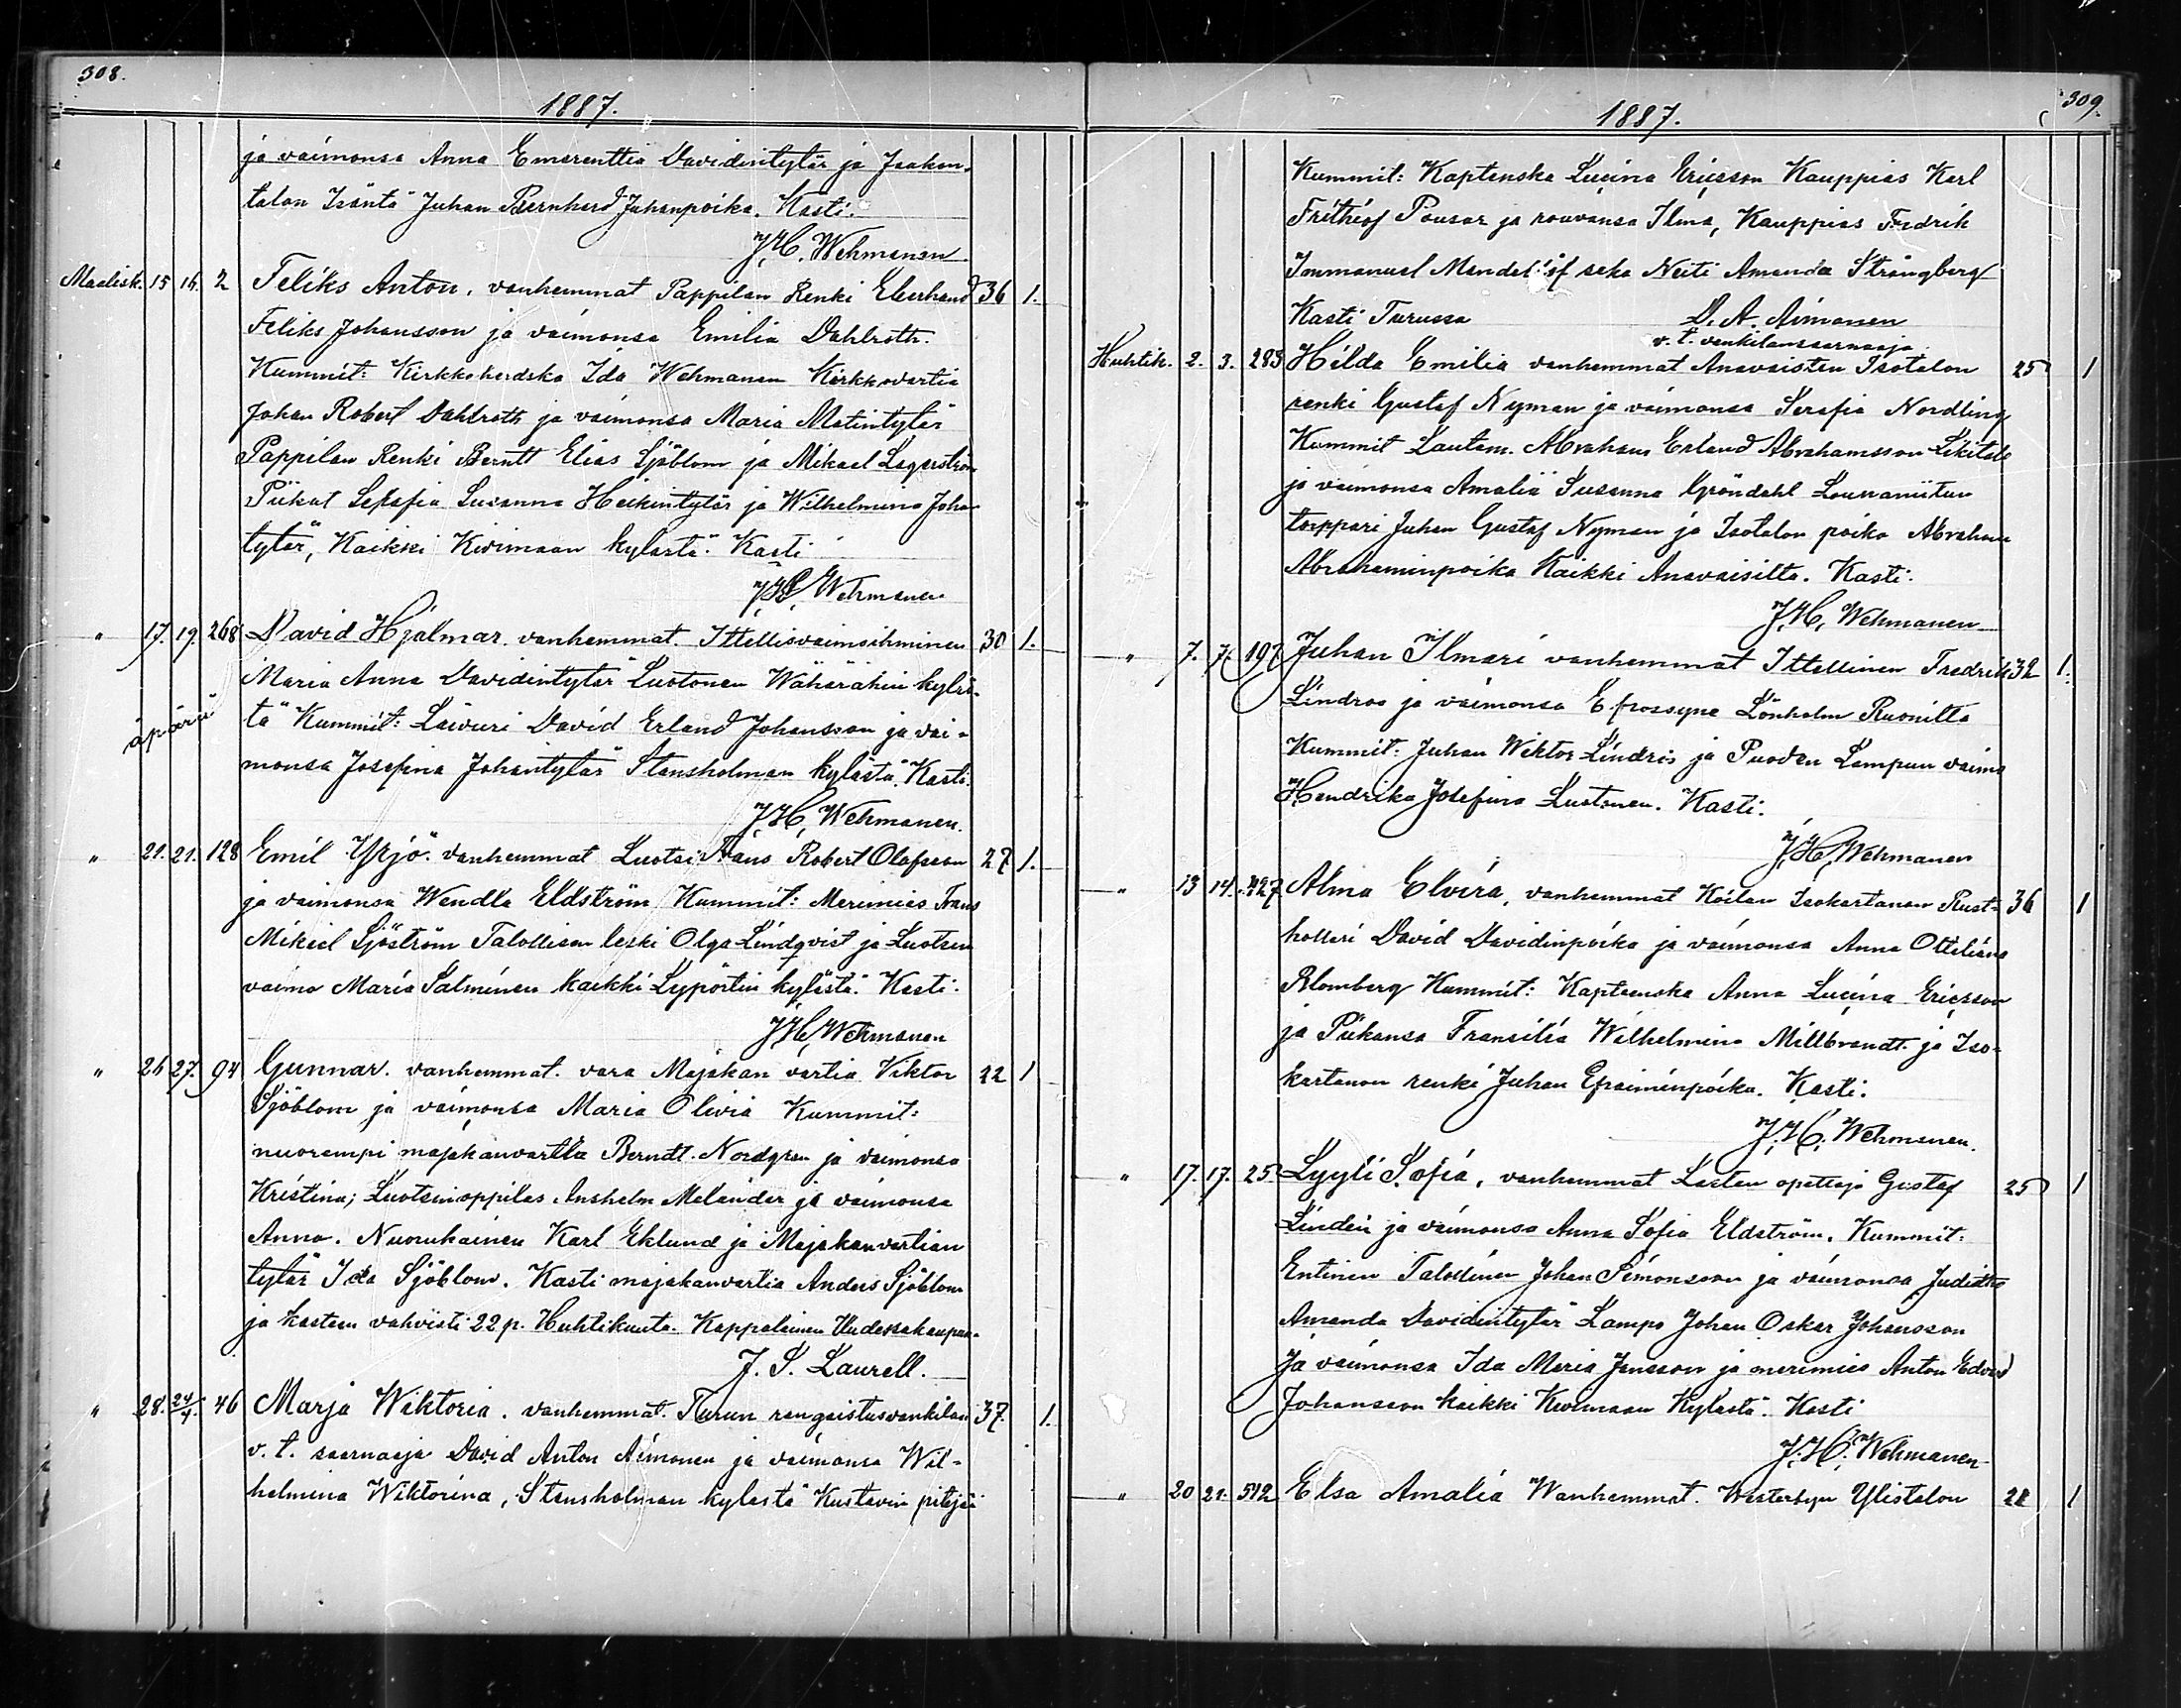 308.
1887.
ja vaimonsa Anna Emerenttia Davidintytär ja Jaakon-
talon Isäntä Juhan Bernhard Juhanpoika. Kasti:
J. H. Wehmanen
Maalisk. 15 16. 2 Feliks Anton, vanhemmat Pappilan Renki Eberhard 36 1.
Feliks Johansson ja vaimonsa Emilia Dahlroth.
Kummit: Kirkkoherdska Ida Wehmanen Kirkkovartia
Johan Robert Dahlroth ja vaimonsa Maria Matintytär
Pappilan Renki Berntt Elias Sjöblom ja Mikael Lagerström
Piikat Serafia Susanna Heikintytär ja Wilhelmina Johan
tytär, Kaikki Kivimaan kylästä. Kasti
J. H. Wehmanen
" 17. 19. 268 David Hjalmar. vanhemmat. Ittellisvaimoihminen 30 1.
Maria Anna Davidintytär Luotonen Wähärahin kyläs-
äpärä
tä Kummit: Laivuri David Erland Johansson ja vai-
monsa Josefina Johantytär Stensholman kylästä. Kasti:
J. H. Wehmanen.
" 21. 21. 128 Emil Yrjö. vanhemmat Luotsi Frans Robert Olofsson 27 1.
ja vaimonsa Wendla Eldström Kummit: Merimies Frans
Mikael Sjöström Talollisen leski Olga Lindqvist ja Luotsin
vaimo Maria Salminen kaikki Lypörtin kylästä. Kasti.
J. H. Wehmanen
" 26 27. 94 Gunnar. vanhemmat. vara Majakan vartia Viktor 22 1
Sjöblom ja vaimonsa Maria Olivia Kummit:
nuorempi majakanvartia Berndt Nordgren ja vaimonsa
Kristina; Luotsinoppilas Anshelm Melander ja vaimonsa
Anna. Nuorukainen Karl Eklund ja Majakanvartian
tytär Ida Sjöblom. Kasti majakanvartia Anders Sjöblom
ja kasteen vahvisti 22 p. Huhtikuuta. Kappalainen Uudessakaupun-
J. S. Laurell.
" 28. 24/4. 46 Marja Wiktoria. vanhemmat. Turun rangaistusvankilan 37. 1.
v. t. saarnaaja David Anton Aimonen ja vaimonsa Wil-
helmina Wiktorina, Stensholman kylästä Kustavin pitäjä
309.
1887.
Kummit: Kaptenska Lucina Ericsson Kauppias Karl
Frithiof Pousar ja rouvansa Ilma, Kauppias Fredrik
Immanuel Mandelöf seka Neiti Amanda Strångberg
Kasti Turussa D. A. Aimonen
v. t. vankilansaarnaaja
Huhtik. 2. 3. 283 Hilda Emilia vanhemmat Anavaisten Isotalon 25 1
renki Gustaf Nyman ja vaimonsa Serafia Nordling
Kummit Lautam. Abraham Erland Abrahamsson Likitalo
ja vaimonsa Amalia Susanna Gröndahl Lounaniitun
torppari Juhan Gustaf Nyman ja Isotalon poika Abraham
Abrahaminpoika Kaikki Anavaisilta. Kasti.
J. H. Wehmanen
" 7. 7. 197 Juhan Ilmari vanhemmat Ittellinen Fredrik 32 1.
Lindroo ja vaimonsa Efrossyne Lönholm Ruonilta
Kummit: Juhan Wiktor Lindris ja Puoden Lampun vaimo
Hendrika Josefina Luotonen. Kasti.
J. H. Wehmanen
" 13 14. 427 Alma Elvira, vanhemmat Koilan Isokartanon Rust- 36 1
hollari David Davidinpoika ja vaimonsa Anna Ottiliana
Blomberg Kummit: Kaptenska Anna Lucina Ericsson
ja Piikansa Fransilia Wilhelmina Millbrandt ja Iso-
kartanon renki Juhan Efraiminpoika. Kasti.
J. H. Wehmanen.
" 17. 17. 25 Lyyli Sofia, vanhemmat Lasten opettaja Gustaf 25 1
Linden ja vaimonsa Anna Sofia Eldström. Kummit:
Entinen Talollinen Johan Simonsson ja vaimonsa Judith
Amanda Davidintytär Lampo Johan Oskar Johansson
Ja vaimonsa Ida Maria Jansson ja merimies Anton Edvard
Johansson kaikki Kivimaan Kylästä. Kasti
J. H. Wehmanen
" 20 21. 512 Elsa Amalia Wanhemmat. Westerbyn Ylistalon 1